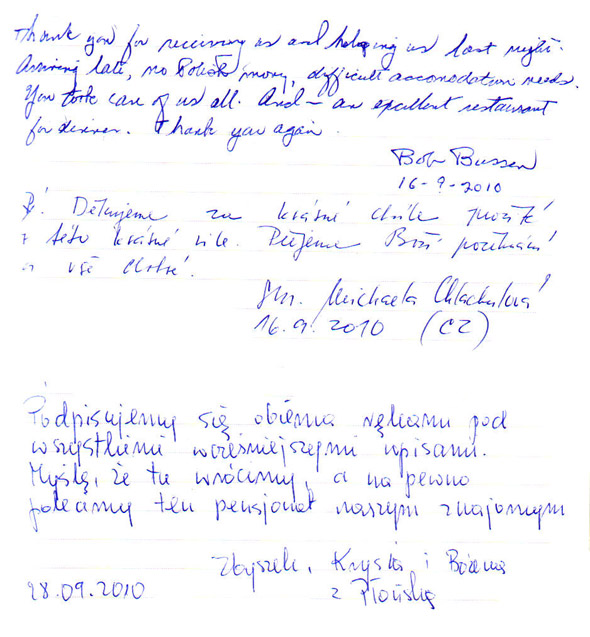 Thank you for receiving us and helping us last night.
Arriving late, no Polish money, difficult accomodation needs.
You took care of us all. And – an excellent restaurant
for dinner. Thank you again.
Bob Bussen
16-9-2010
Děkujeme za krásné chvíle prožité
v této krásné vile. Přejeme Boží požehnání
a vše dobré.
Michaela Chlachulová
16.9.2010 (CZ)
Podpisujemy się obiema rękami pod
wszystkimi wcześniejszymi wpisami.
Myślę, że tu wrócimy, a na pewno
polecamy ten pensjonat naszym znajomym
Zbyszek, Krysia i Bożena
28.09.2010 z Płońska